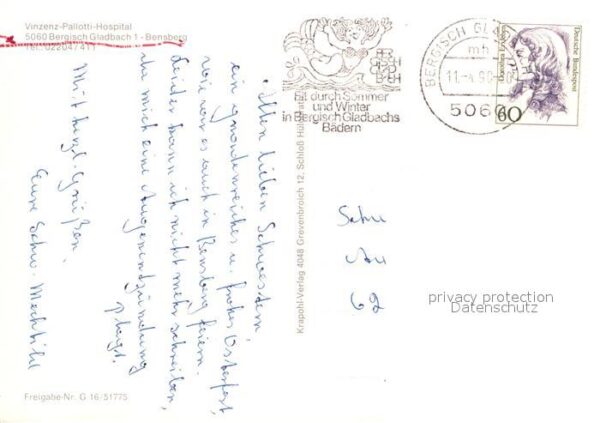 Vinzenz-Pallotti-Hospital
5060 Bergisch Gladbach 1 - Bensberg
Tel. 02204/411
Allen lieben Schwestern
ein gnadenreiches u. frohes Osterfest,
wie wir es auch in Bensberg feiern.
Leider kann ich nicht mehr schreiben,
da mich eine Augenentzündung
plagt.
Mit herzl. Grüßen
Eure Schw. Mechtild
Freigabe-Nr. G 16/51775
Krapohl-Verlag 4048 Grevenbroich 12, Schloß Hülchrath
Fit durch Sommer
und Winter
in Bergisch Gladbachs
Bädern
BERGISCH GL
mh
11.-4.90
5060
Deutsche Bundespost
60
Schw
62
privacy protection
Datenschutz